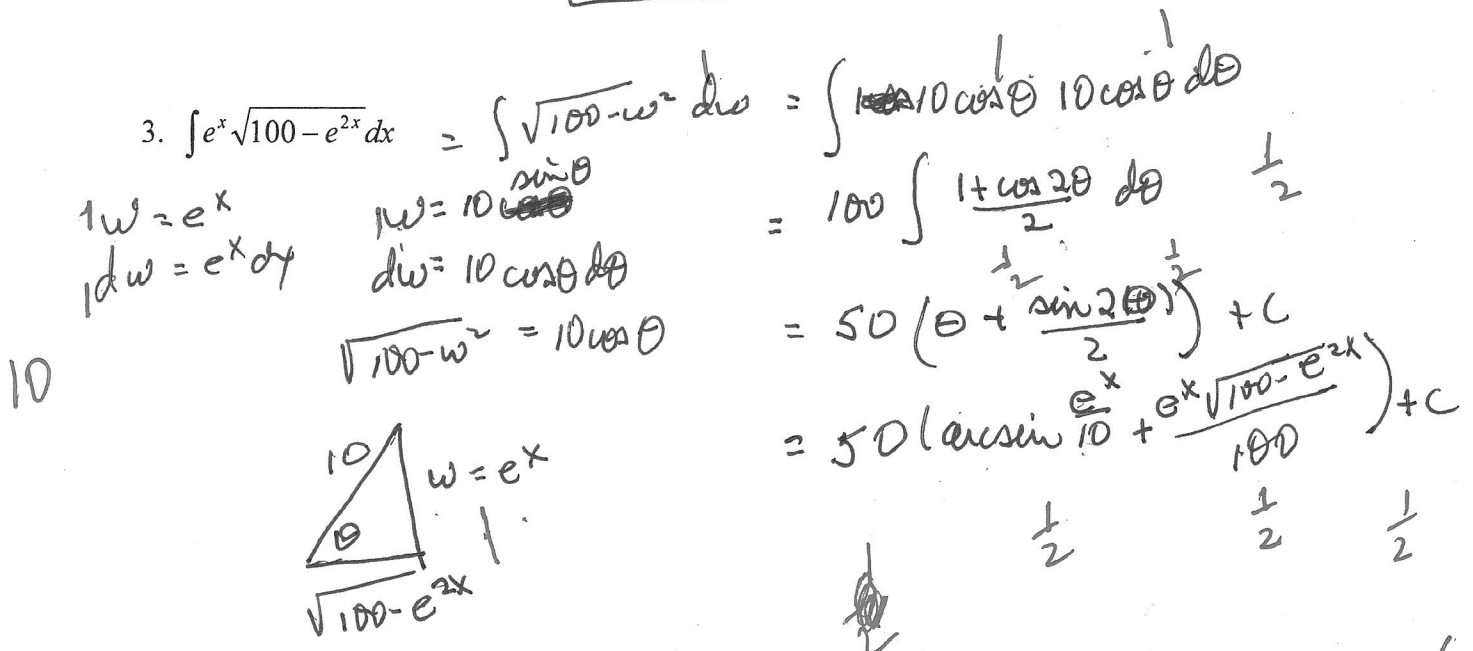 3. ∫e^x √(100 – e^(2x)) dx = ∫ √(100-w²) dw = ∫ 10 cos θ 10 cos θ dθ
1 1 1
1 w = e^x
1 dw = e^x dx
1 w = 10 sin θ
dw = 10 cos θ dθ
√(100-w²) = 10 cos θ
= 100 ∫ (1 + cos 2θ)/2 dθ 1/2
1/2 1/2
= 50 (θ + (sin 2θ)/2) + C
= 50 (arcsin e^x/10 + (e^x √(100-e^(2x)))/100) + C
1/2 1/2 1/2
10
10
w = e^x
1
θ
√(100-e^(2x))